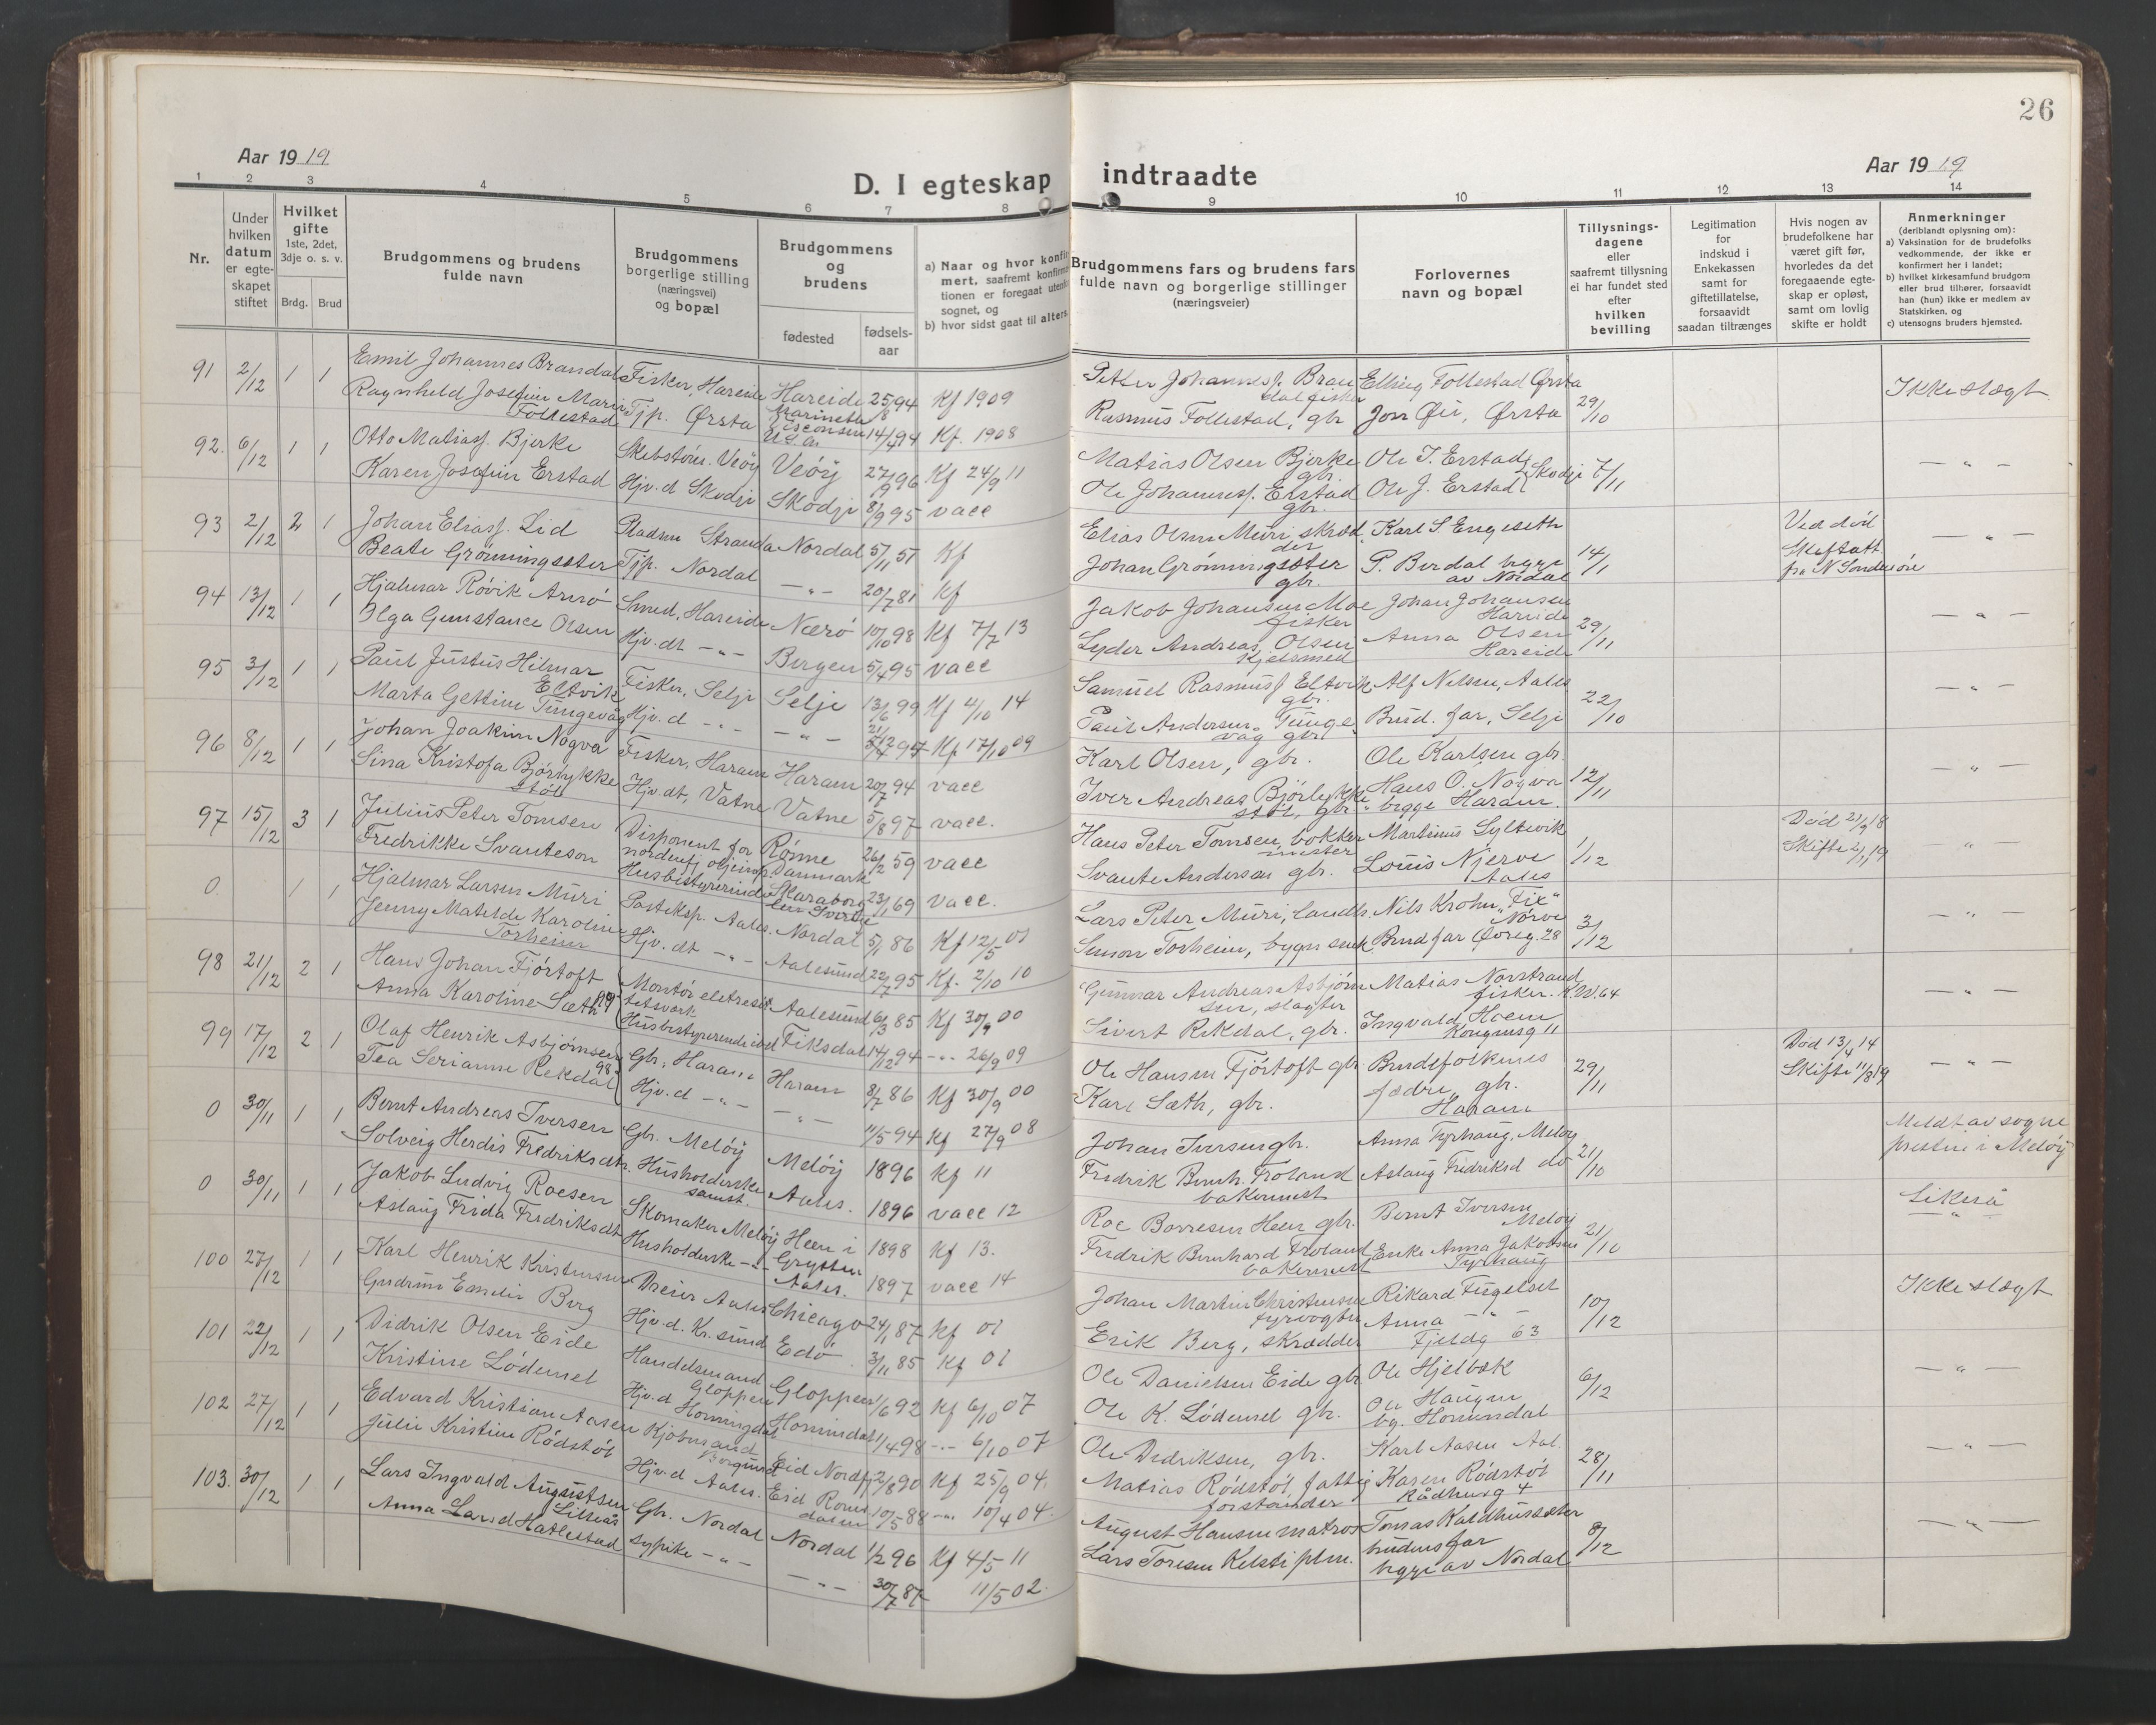 26
Aar 1919
D. I egteskap
indtraadte
Aar 1919
1 2 3 4 5 6 7 8 9 10 11 12 13 14
Nr.
Under hvilken datum er egte- skapet stiftet
Hvilket gifte 1ste, 2det, 3dje o. s. v.
Brdg. Brud
Brudgommens og brudens fulde navn
Brudgommens borgerlige stilling (næringsvei) og bopæl
Brudgommens og brudens
fødested
fødsels- aar
a) Naar og hvor konfir
mert, saafremt konfirma
tionen er foregaat utenfo
sognet, og
b) hvor sidst gaat til alters
Brudgommens fars og brudens fars fulde navn og borgerlige stillinger (næringsveier)
Forlovernes navn og bopæl
Tillysnings- dagene eller saafremt tillysning ei har fundet sted efter hvilken bevilling
Legitimation for indskud i Enkekassen samt for giftetillatelse, forsaavidt saadan tiltrænges
Hvis nogen av brudefolkene har været gift før, hvorledes da det foregaaende egte- skap er opløst, samt om lovlig skifte er holdt
Anmerkninger (deriblandt oplysning om):
a) Vaksination for de brudefolks vedkommende, der ikke er konfirmert her i landet;
b) hvilket kirkesamfund brudgom eller brud tilhører, forsaavidt han (hun) ikke er medlem av Statskirken, og
c) utensogns bruders hjemsted.
91 2/12 1 1 Emil Johannes Brandal Fisker, Hareide Hareide 25/8 94 Kf 1909 Petter Johannesf. Bran dal fisker Elling Follestad Ørsta 29/10 Ikke slægt
Ragnhild Josefine Marie Follestad Tjp. Ørsta Marinette Visconsin U.S.A. 14/4 94 Kf. 1908 Rasmus Follestad, gbr Jon Øie, Ørsta
92. 6/12 1 1 Otto Matiasf. Bjerke Veöy Veöy 27/9 96 Kf 24/9 11 Matias Olsen Bjerke gbr. Ole J. Erstad Skodji 7/11 — " —
Karen Josefine Erstad Hjv. d Skodji Skodji 8/9 95 vacc Ole Johannesf. Erstad gbr. Ole J. Erstad
93 2/12 2 1 Johan Eliasf. Lid Pladsm Stranda Nordal 5/11 57 Kf Elias Olsen Muri skræd der Karl S Engeseth 14/1 Ved död Skiftatt fra N Söndmöre — " —
Beate Grönningsæter Tjp. Nordal — " — 20/7 81 Kf Johan Grönningsæter gbr. P. Berdal begge av Nordal
94 13/12 1 1 Hjalmar Rövik Arnö Smed, Hareide Nærö 10/10 98 Kf 7/7 13 Jakob Johansen Moe fisker Johan Johansen Hareide 29/11 — " —
Olga Gunstance Olsen Hjv. dt — " — Bergen 5/4 95 vacc Lyder Andreas Olsen Kjelsmed Anna Olsen Hareide
95 3/12 1 1 Paul Justus Hilmar Eltvik Fisker, Selje Selje 13/6 99 Kf 4/10 14 Samuel Rasmusf Eltvik gbr. Alf Nilsen, Aales 22/10 — " —
Marta Gettine Tungevåg Hjv. d — " — — " — Kf 17/10 09 Paul Andersen Tunge våg gbr Brud. far, Selje
96 8/12 1 1 Johan Joakim Nogva Fisker, Haram Haram 20/7 94 vacc Karl Olsen, gbr. Ole Karlsen gbr. 12/11 — " —
Sina Kristofa Björlykke stöl Hjv. dt, Vatne Vatne 5/8 97 vacc. Iver Andreas Björlykke stöl, gbr. Hans O. Nogva begge Haram.
97 15/12 3 1 Julius Peter Tomsen Disponent for nordenfj oljeimp. Rönne Danmark 26/2 59 vacc Hans Peter Tomsen, bokker mester Martinus Syltevik 1/12 Död 21/9 18 — " —
Fredrikke Svanteson Husbestyrerinde Skaraborg len Sverige 23/1 69 vacc. Svante Anderson gbr. Louis Njerve Aales Skifte 2/11 19
0. 1 1 Hjalmar Larsen Muri Posteksp. Aales. Nordal 5/1 86 Kf 12/5 01 Lars Peter Muri, landh. Nils Krohn, "Fix" Nörve 3/12 — " —
Jenny Matilde Karoline Torheim Hjv. dt — " — Aalesund 22/7 95 Kf. 2/10 10 Simon Torheim, bygn snek. Brud far Övreg. 28
98 21/12 2 1 Hans Johan Fjörtoft Montör eletresi tetsverk Aalesund 6/3 85 Kf 30/9 00 Gunnar Andreas Asbjörn sen, slagter Matias Norstrand fisker. K.W. 64 — " —
Anna Karoline Sæth 99 Husbestyrerende ibd Fiksdal 14/12 94 -"- 26/9 09 Sivert Rekdal, gbr. Ingvald Hoem Kongensg 11
99 17/12 2 1 Olaf Henrik Asbjörnsen Gbr, Haram Haram 8/7 86 Kf 30/9 00 Ole Hansen Fjörtoft gbr Brudefolkenes 29/11 Död 13/4 14 — " —
Tea Serianne Rekdal 98 Hjv. d — " — — " — 11/5 94 Kf 27/9 08 Karl Sæth, gbr. fædre, gbr. Haram Skifte 11/8 19
0 30/11 1 1 Bernt Andreas Iversen Gbr. Melöy Melöy 1896 Kf 11 Johan Iversen gbr. Anna Tyrhaug, Melöy 21/10 Meldt av sogne presten i Melöy
Solveig Herdis Fredriksdtr. Husholderske samst. Aales. 1896 vacc 12 Fredrik Bernh. Froland bakermest Aslaug Fredriksd do
0 30/11 1 1 Jakob Ludvig Roesen Skomaker Melöy Heen i Grytten 1898 Kf 13. Roe Borresen Heen gbr. Bernt Iversen Melöy 21/10 Likeså
Aslaug Frida Fredriksdt Husholderske — " — Aales. 1897 vacc 14 Fredrik Bernhard Froland bakermest Enke Anna Jakobsen Tyrhaug
100 27/12 1 1 Karl Henrik Kristensen Dreier Aales Chicago 24/1 87 Kf 01 Johan Martin Christensen fyrvogter Rikard Fugelset 10/12 Ikke slægt
Gudrun Emilie Berg Hjv. d. Kr. sund Edö 3/11 85 Kf 01 Erik Berg, skrædder Anna — " — Fjeldg 63
101 22/12 1 1 Didrik Olsen Eide Handelsmand Gloppen Gloppen 1/6 92 Kf 6/10 07 Ole Danielsen Eide gbr Ole Hjelbak 6/12 — " —
Kristine Lödemel Hjv. d Horningdal Hornindal 11/4 98 -"- 6/10 07 Ole K. Lödemel gbr. Ole Haugen bg. Hornindal
102 27/12 1 1 Edvard Kristian Aasen Kjöbmand Borgund Eid Nordfj 12/8 90 Kf 25/9 04. Ole Didriksen, gbr. Karl Aasen Aal. 28/11 — " —
Julie Kristine Rödstöl Hjv. d Aales. Eid Roms dalen 10/5 88 -"- 10/4 04. Matias Rödstöl, fattig forstander Karen Rödstöl Rådhusg 4
103. 30/12 1 1 Lars Ingvald Augustsen Lilleås Gbr. Nordal Nordal 1/2 96 Kf 4/5 11 August Hansen matros Tomas Kaldhussæter 8/12 — " —
Anna Larsd Hatlestad sypike — " — — " — 30/7 87 11/5 02. Lars Toresen Kelsti plm. brudens far begge av Nordal